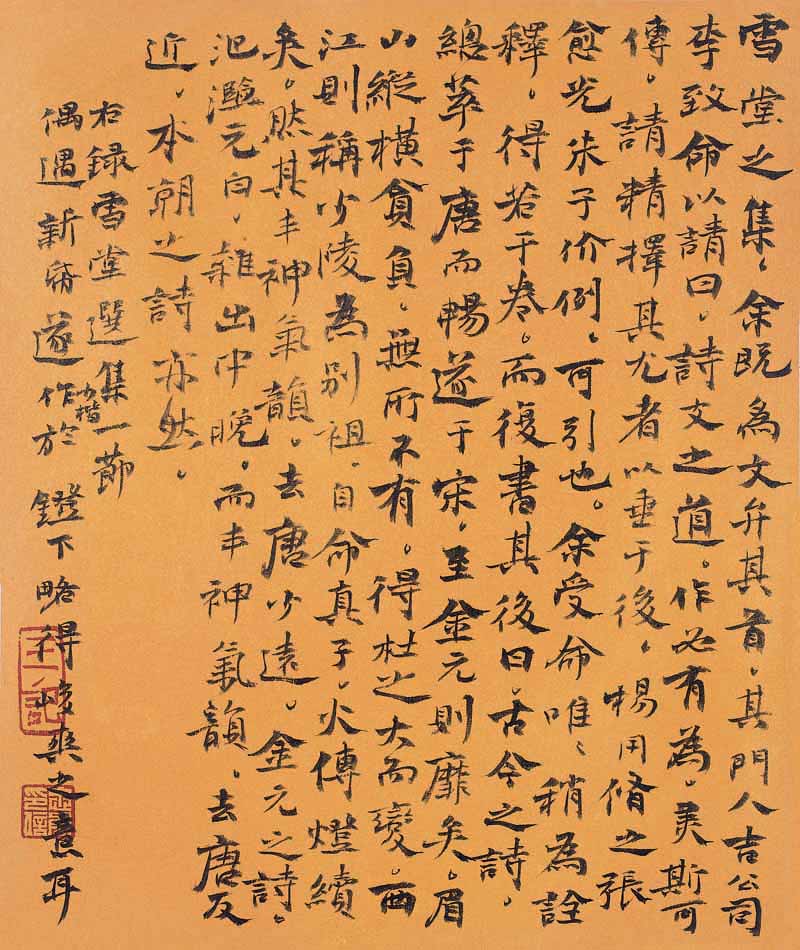 雪堂之集，余既為文弁其首，其門人吉公司
李致命以請曰，詩文之道。作必有為，美斯可
傳。請精擇其尤者以垂于後，楊用脩之張
愈光朱子价例，可引也。余受命唯〻稍為詮
釋，得若干卷。而復書其後曰，古今之詩，
總萃于唐而暢遂于宋，至金元則靡矣。眉
山縱橫貪負，無所不有。得杜之大而變。西
江則稱少陵為別祖，自命真子。火傳燈續
矣。然其丰神氣韻。去唐少遠。金元之詩。
氾濫元白，雜出中晚。而丰神氣韻，去唐反
近。本朝之詩亦然。
右錄雪堂選集一節
小楷
偶遇新帋遂作於鐙下略得峻爽之意耳